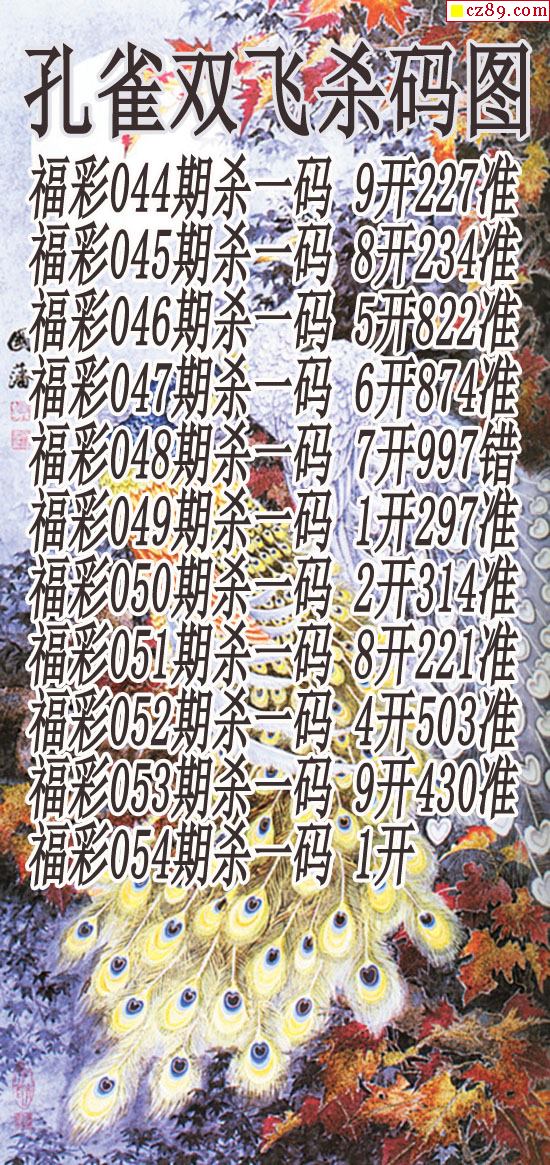 cz89.com
孔雀双飞杀码图
福彩044期杀一码 9开227准
福彩045期杀一码 8开234准
福彩046期杀一码 5开822准
福彩047期杀一码 6开874准
福彩048期杀一码 7开997错
福彩049期杀一码 1开297准
福彩050期杀一码 2开314准
福彩051期杀一码 8开221准
福彩052期杀一码 4开503准
福彩053期杀一码 9开430准
福彩054期杀一码 1开